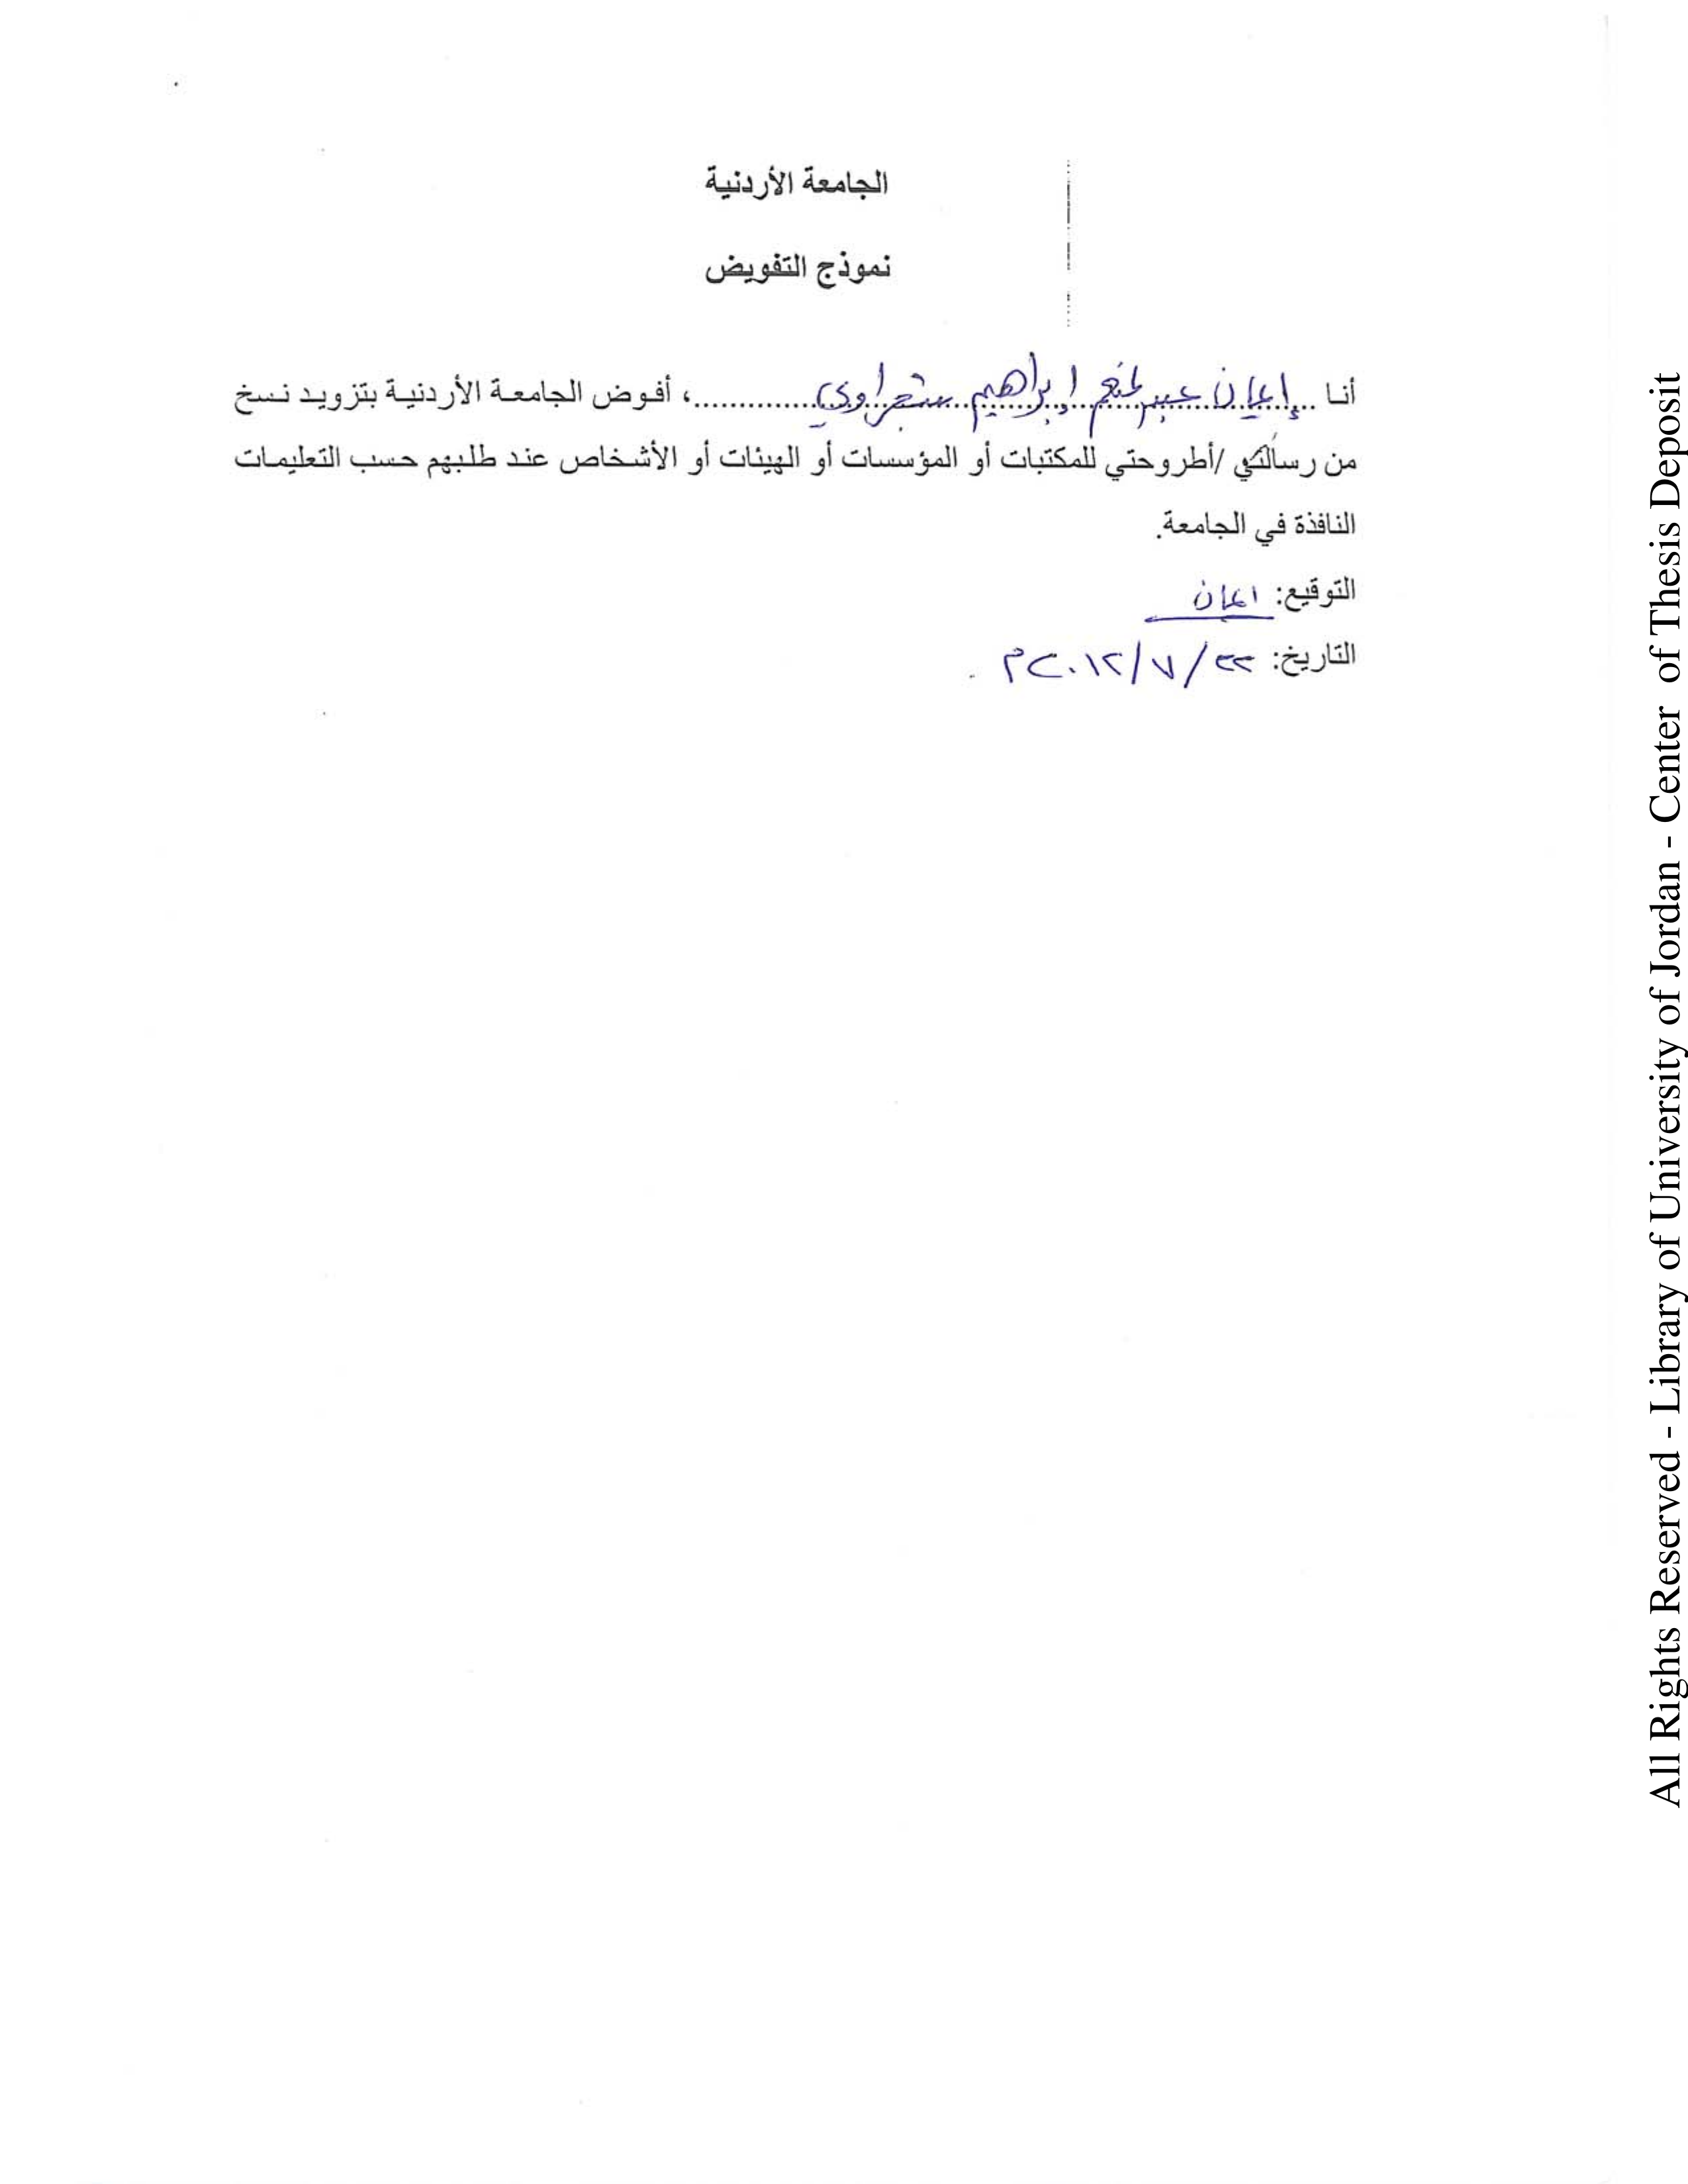 الجامعة الأردنية
نموذج التفويض
أنا إيمان عبد المنعم إبراهيم ...................، أفوض الجامعة الأردنية بتزويد نسخ
من رسالتي /أطروحتي للمكتبات أو المؤسسات أو الهيئات أو الأشخاص عند طلبهم حسب التعليمات
النافذة في الجامعة.
التوقيع: ايمان
التاريخ: ٢٢/ ٧ /٢٠١٢م.
All Rights Reserved - Library of University of Jordan - Center of Thesis Deposit